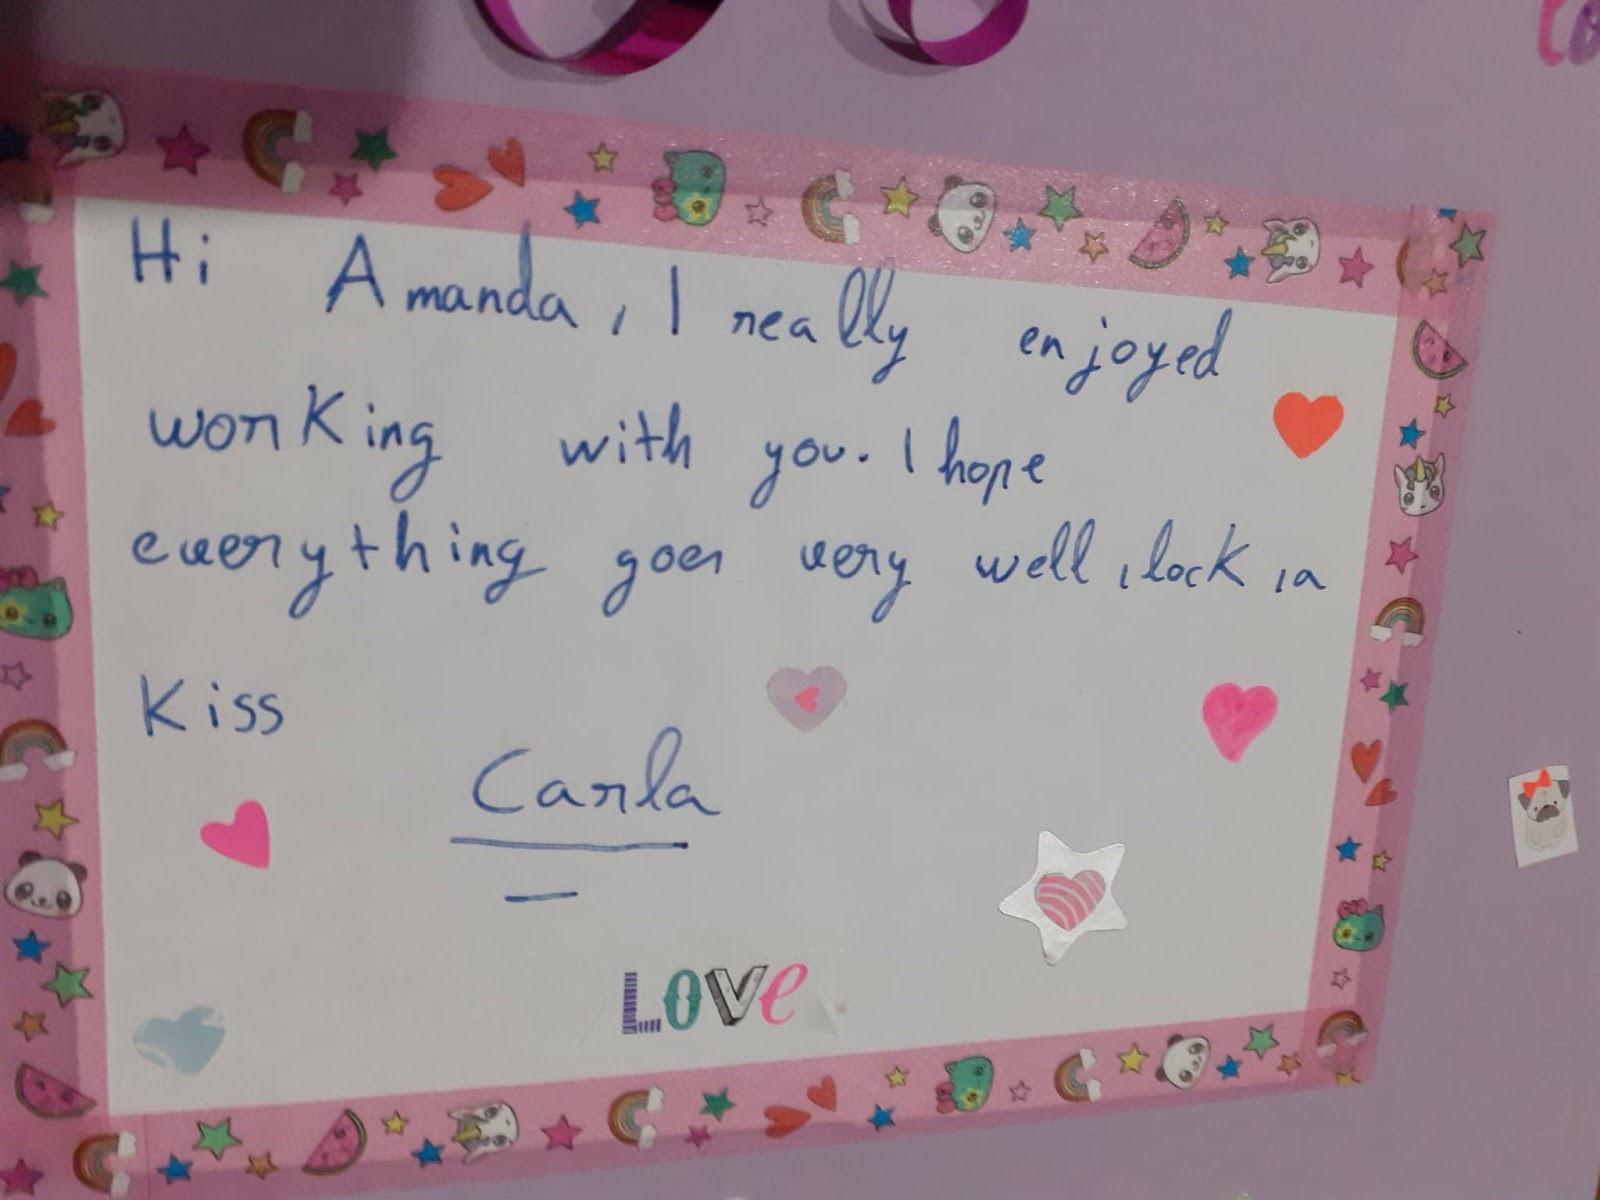 Hi Amanda, I really enjoyed
working with you. I hope
everything goes very well, lock, a
Kiss
Carla
LOVe